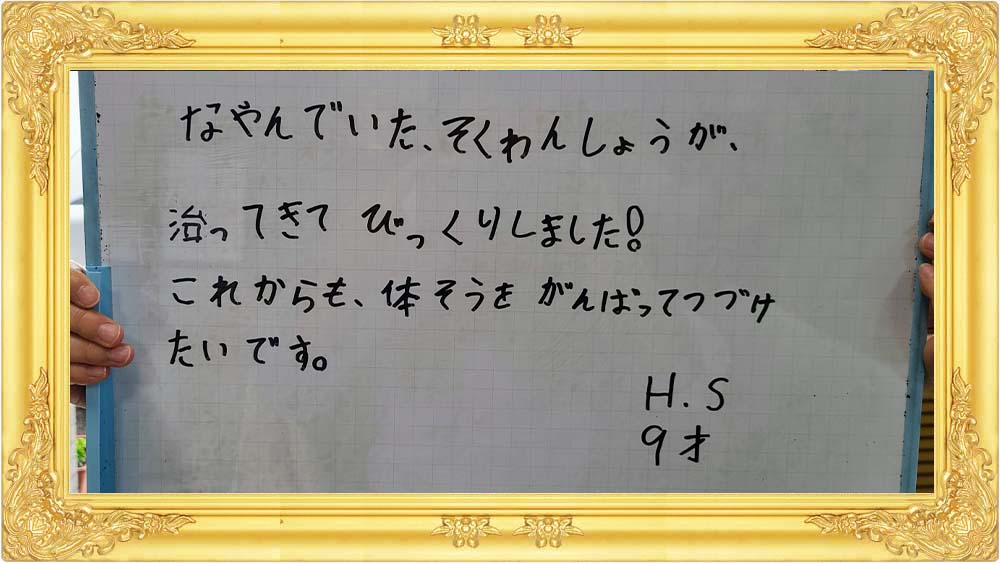 なやんでいた、そくわんしょうが、
治ってきてびっくりしました!
これからも、体そうをがんばってつづけ
たいです。
H.S
9才